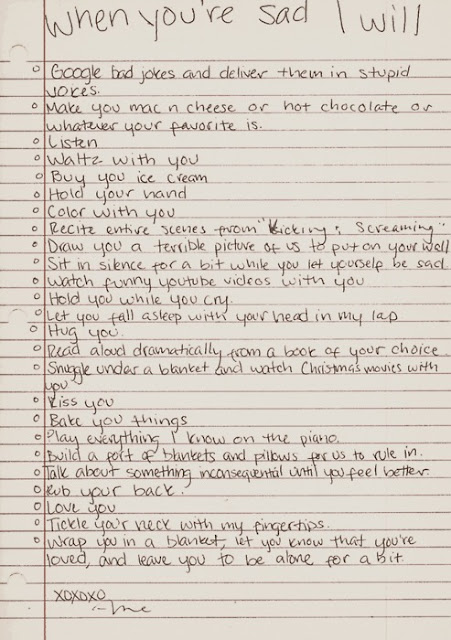 when you're sad I will
o Google bad jokes and deliver them in stupid
voices.
o Make you mac n cheese or hot chocolate or
whatever your favorite is.
o Listen
o Waltz with you
o Buy you ice cream
o Hold your hand
o Color with you
o Recite entire scenes from "Kicking & Screaming"
o Draw you a terrible picture of us to put on your wall
o Sit in silence for a bit while you let yourself be sad
o Watch funny youtube videos with you
o Hold you while you cry.
o Let you fall asleep with your head in my lap
o Hug you.
o Read aloud dramatically from a book of your choice.
o Snuggle under a blanket and watch Christmas movies with
you
o Kiss you
o Bake you things
o Play everything I know on the piano.
o Build a fort of blankets and pillows for us to rule in.
o Talk about something inconsequential until you feel better.
o Rub your back.
o Love you
o Tickle your neck with my fingertips.
o Wrap you in a blanket, let you know that you're
loved, and leave you to be alone for a bit.
XOXOXO
-me